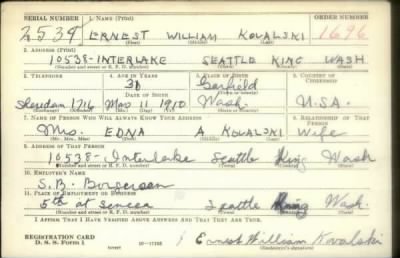 SERIAL NUMBER 1. NAME (Print) ORDER NUMBER
2539 ERNEST WILLIAM KOVALSKI 1696
(First) (Middle) (Last)
2. ADDRESS (Print)
10538- INTERLAKE SEATTLE KING WASH
(Number and street or R. F. D. number) (Town) (County) (State)
3. TELEPHONE 4. AGE IN YEARS 5. PLACE OF BIRTH 6. COUNTRY OF CITIZENSHIP
30 Garfield
DATE OF BIRTH
Sheridan 1716 Mar 11 1910 Wash. U.S.A.
(Exchange) (Number) (Mo.) (Day) (Yr.) (State or country)
7. NAME OF PERSON WHO WILL ALWAYS KNOW YOUR ADDRESS 8. RELATIONSHIP OF THAT PERSON
Mrs. EDNA A KOVALSKI Wife
(Mr., Mrs., Miss) (First) (Middle) (Last)
9. ADDRESS OF THAT PERSON
10538- Interlake Seattle King Wash
(Number and street or R. F. D. number) (Town) (County) (State)
10. EMPLOYER'S NAME
S. B.
11. PLACE OF EMPLOYMENT OR BUSINESS
5th at Seneca Seattle King Wash.
(Number and street or R. F. D. number) (Town) (County) (State)
I AFFIRM THAT I HAVE VERIFIED ABOVE ANSWERS AND THAT THEY ARE TRUE.
REGISTRATION CARD
D. S. S. Form 1 Ernest William Kovalski
(Registrant's signature)